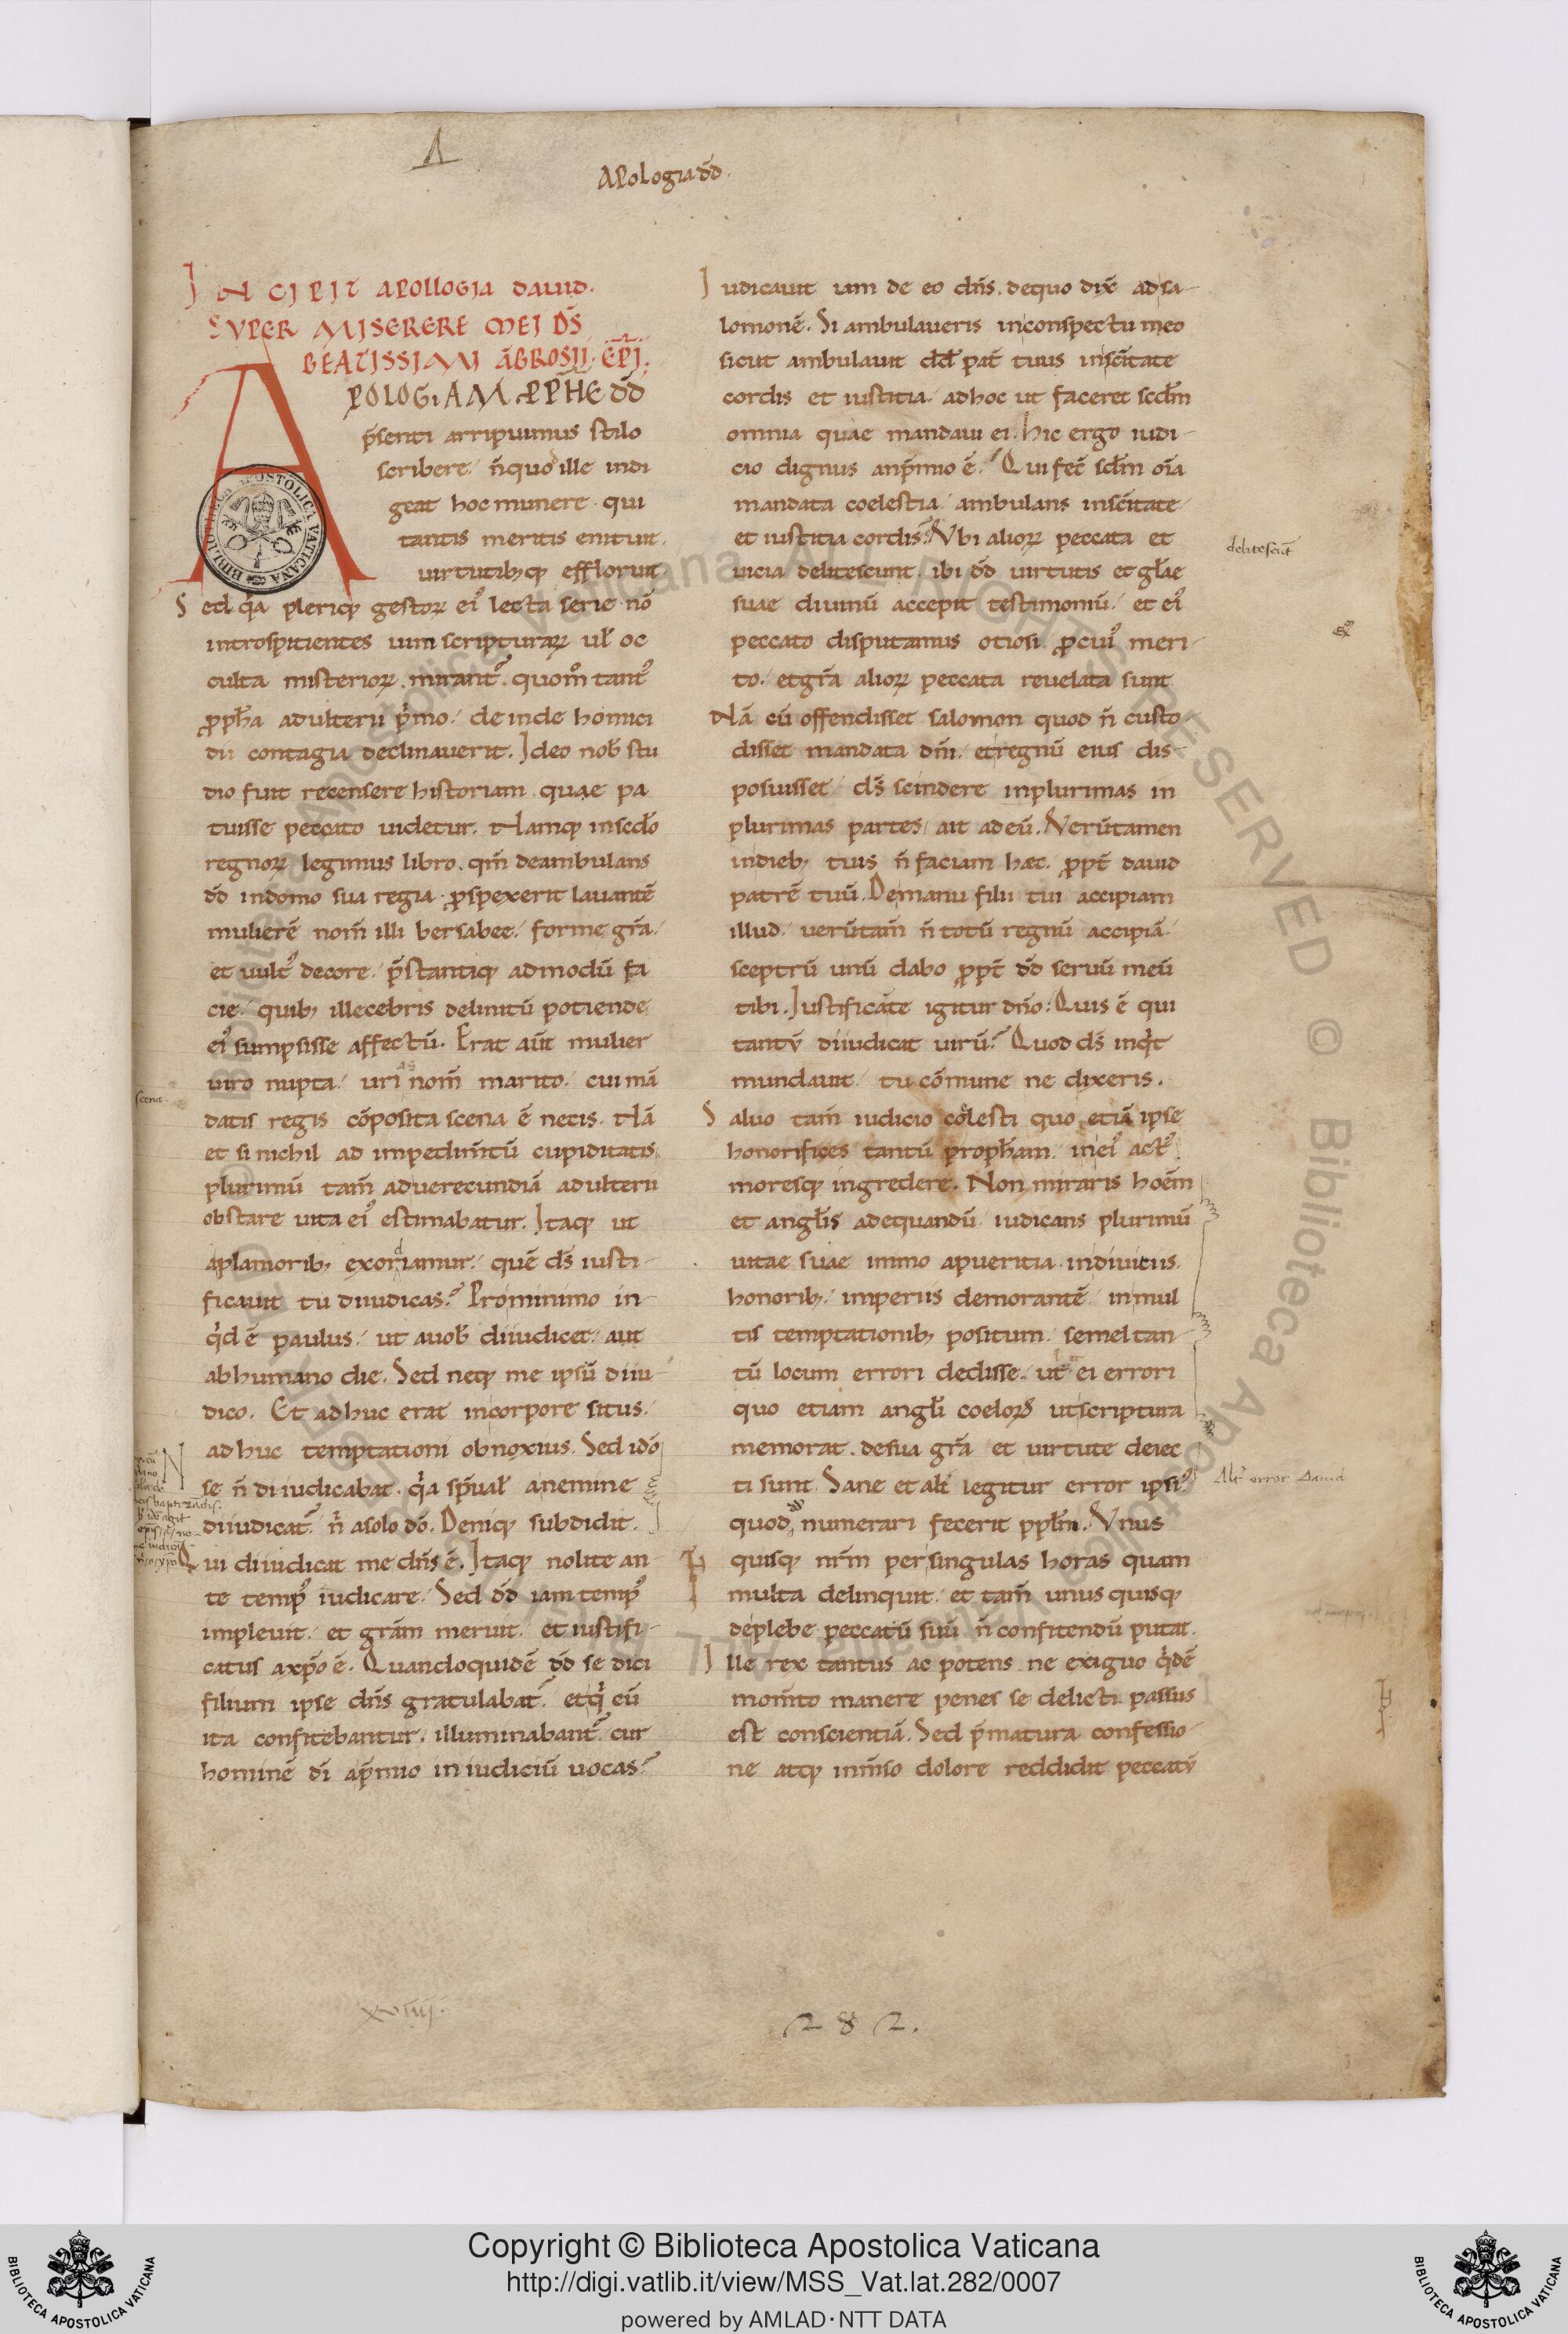 1
Apologia dd̄.
INCIPIT APOLLOGIA DAVID.
SVPER MISERERE MEI DS̄
BEATISSIMI ĀBROSII. EP̄I.
APOLOGIAM PP̄HE DD̄
p̄senti arripuimus stilo
scribere. n̄ quod ille indi
geat hoc munere. qui
tantis meritis enituit.
uirtutibꝫq; effloruit.
Sed q̄a pleriq; gestoꝝ ei᾽ lecta serie. nō
introspitientes uim scripturaꝝ ul̄ oc
culta misterioꝝ. mirant᾽. quom̊ tant᾽
ꝓph̄a adulterii p̄mo. deinde homici
dii contagia declinauerit. Ideo nob̄ stu
dio fuit recensere historiam. quae pa
tuisse peccato uidetur. Namq; in scd̄o
regnoꝝ legimus libro. qm̄ deambulans
dd̄ in domo sua regia. ꝓspexerit lauantē
mulierē nom̄ illi bersabee. forme gr̄a.
et uult᾽ decore. p̄stantiq; admodū fa
cie. quibꝫ illecebris delinitū potiende
ei᾽ sumpsisse affectū. Erat aūt mulier
uiro nupta. uri nom̄ marito. cui mā
datis regis cōposita scena ē necis. Nā
et si nichil ad impedim̄tū cupiditatis
plurimū tam̄ ad uerecundiā adulterii
obstare uita ei᾽ estimabatur. Itaq; ut
a planioribꝫ exordiamur. quē ds̄ iusti-
ficauit tu diiudicas? Pro minimo in-
q̇d ē paulus. ut a uob̄ diiudicer. aut
ab humano die. Sed neq; me ipsū diiu-
dico. Et adhuc erat in corpore situs.
adhuc temptationi obnoxius. Sed idō
se n̄ diiudicabat. q̄a sp̄ual̄ a nemine
diiudicat᾽. n̄ a solo dō. Deniq; subdidit.
Qui diiudicat me dn̄s ē. Itaq; nolite an
te temp᾽ iudicare. Sed dd̄ iam temp᾽
impleuit. et gr̄am meruit. et iustifi-
catus a xp̄o ē. Quandoquidē dd̄ se dici
filium ipse dn̄s gratulabat᾽. et q̇ eū
ita confitebantur. illuminabant᾽. cur
hominē dī a p̄mio in iudiciū uocas?
Iudicauit iam de eo dn̄s. de quo dix̄ ad sa-
lomonē. Si ambulaueris in conspectu meo
sicut ambulauit dd̄ pat̄ tuus in sc̄itate
cordis et iustitia. ad hoc ut faceret scd̄m
omnia quae mandaui ei. Hic ergo iudi-
cio dignus an p̄mio ē? Qui fec̄ scd̄m oīa
mandata coelestia. ambulans in sc̄itate
et iustitia cordis? Vbi alioꝝ peccata et
uicia delitescunt. ibi dd̄ uirtutis et gl̄ae
suae diuinū accepit testimoniū. et ei᾽
peccato disputamus otiosi. ꝓ cui᾽ meri-
to. et gr̄a alioꝝ peccata reuelata sunt.
Nā cū offendisset salomon quod n̄ custo-
disset mandata dn̄i. et regnū eius dis-
posuisset ds̄ scindere in plurimas in
plurimas partes, ait ad eū. Verūtamen
in diebꝫ tuis n̄ faciam haec. ꝓpt̄ dauid
patrē tuū. De manu filii tui accipiam
illud. uerūtam̄ n̄ totū regnū accipiā.
sceptrū unū dabo ꝓpt̄ dd̄ seruū meū
tibi. Iustificāte igitur dn̄o. Quis ē qui
tantū diiudicat uirū? Quod ds̄ inq̇t
mundauit. tu cōmune ne dixeris.
Saluo tam̄ iudicio coelesti quo etiā ipse
honorifices tantū proph̄am. in ei᾽ act᾽
moresq; ingredere. Non miraris hoēm
et angl̄is adequandū. iudicans plurimū
uitae suae immo a pueritia in diuitiis.
honoribꝫ. imperiis demorantē. in mul
tis temptationibꝫ positum. semel tan-
tū locum errori dedisse. ut ei errori
quo etiam angl̄i coeloꝝ ut scriptura
memorat. de sua gr̄a et uirtute deiec
ti sunt. Sane et alt̄ legitur error ipsi᾽
quod numerari fecerit ppl̄m. Vnus
quisq; nr̄m per singulas horas quam
multa delinquit. et tam̄ unusquisq;
de plebe peccatū suū n̄ confitendū putat.
Ille rex tantus ac potens ne exiguo q̇dē
mom̄to manere penes se delicti passus
est conscientiā. Sed p̄matura confessio-
ne atq; inm̄so dolore reddidit peccatū
scena.
delitescūt
Alt᾽ error Dauid
xviiij.
282.
BIBLIOTECA APOSTOLICA VATICANA
© Biblioteca Apostolica Vaticana ALL RIGHTS RESERVED
Copyright © Biblioteca Apostolica Vaticana
http://digi.vatlib.it/view/MSS_Vat.lat.282/0007
powered by AMLAD·NTT DATA
BIBLIOTECA APOSTOLICA VATICANA
BIBLIOTECA APOSTOLICA VATICANA